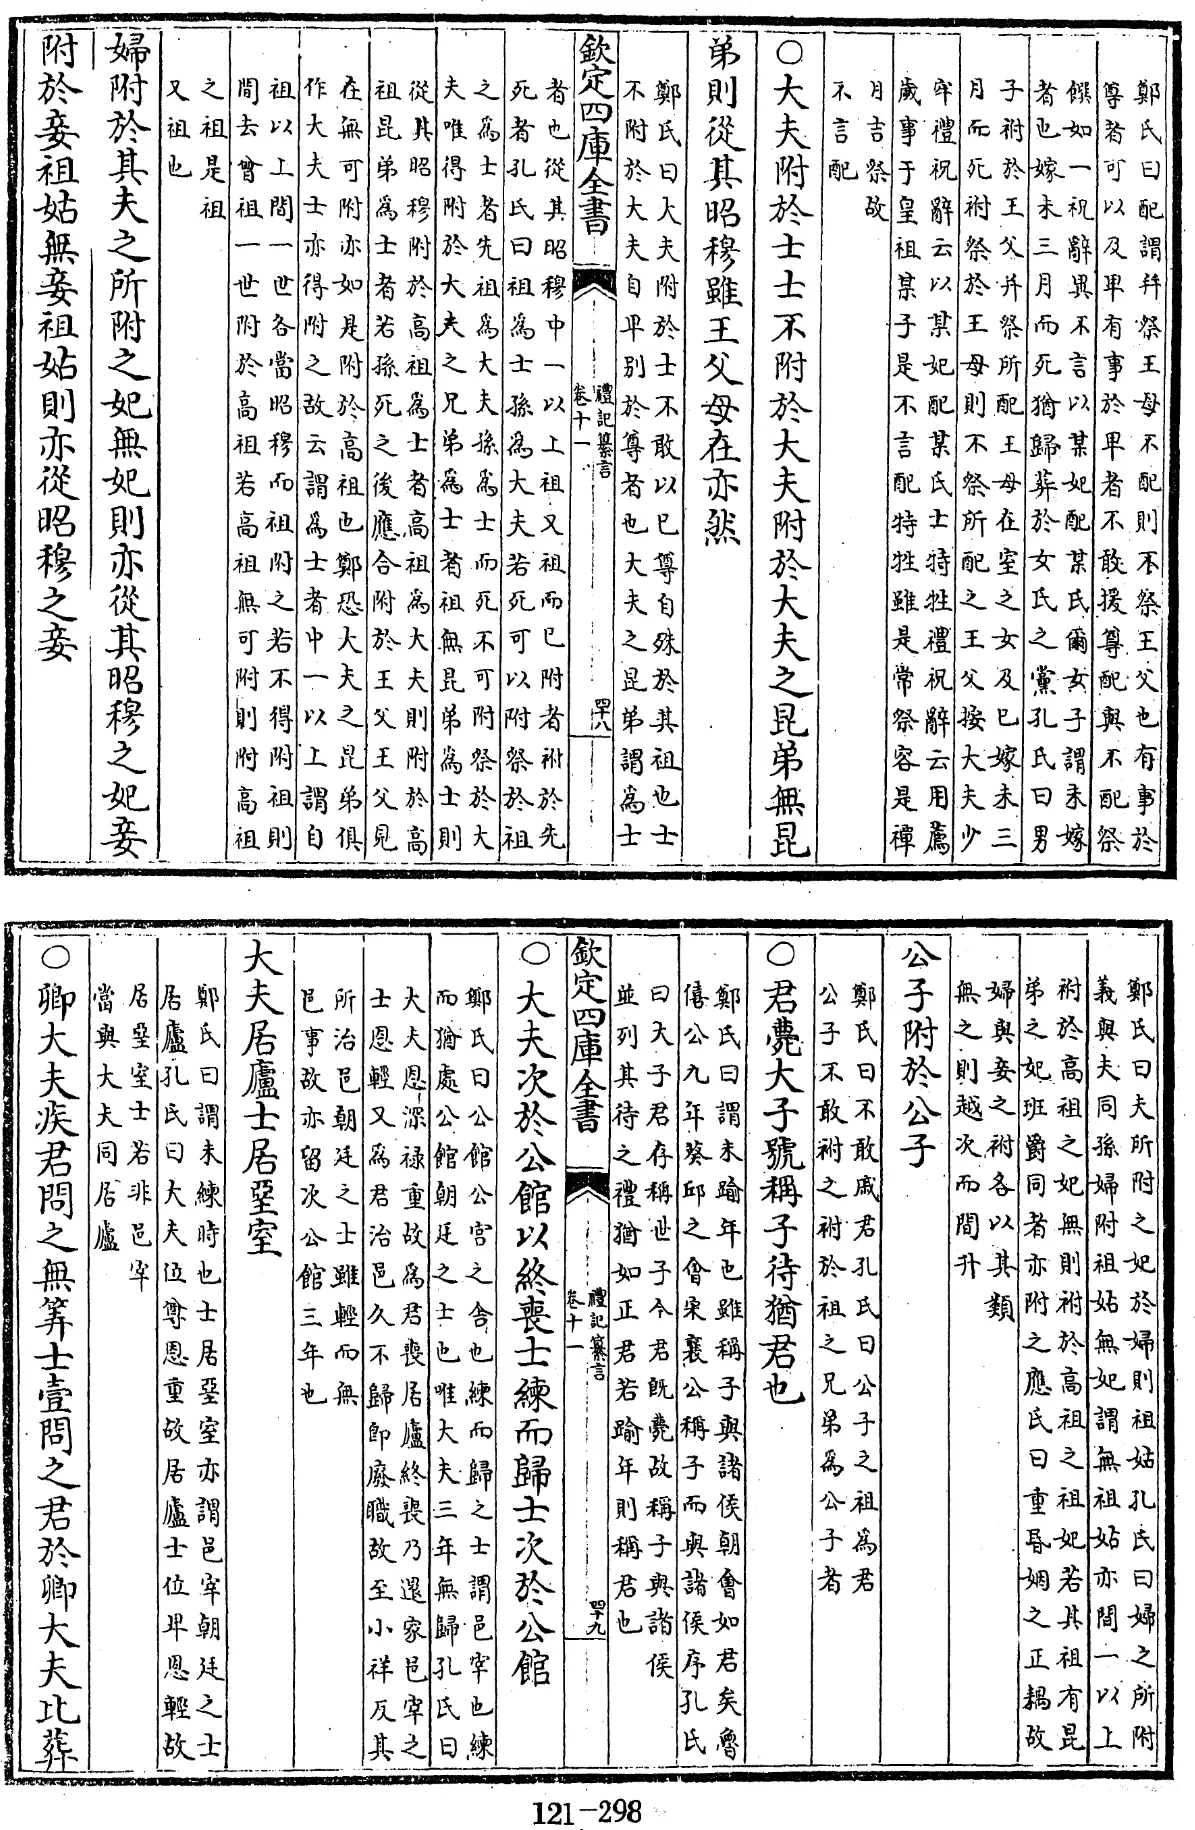 鄭氏曰配謂并祭王母不配則不祭王父也有事於
尊者可以及卑有事於卑者不敢援尊配與不配祭
饌如一祝辭異不言以某妃配某氏爾女子謂未嫁
者也嫁未三月而死猶歸葬於女氏之黨孔氏曰男
子祔於王父并祭所配王母在室之女及已嫁未三
月而死祔祭於王母則不祭所配之王父按大夫少
牢禮祝辭云以某妃配某氏士特牲禮祝辭云用薦
歲事于皇祖某子是不言配特牲雖是常祭容是禫
月吉祭故
不言配
○大夫附於士士不附於大夫附於大夫之昆弟無昆
弟則從其昭穆雖王父母在亦然
鄭氏曰大夫附於士不敢以已尊自殊於其祖也士
不附於大夫自卑别於尊者也大夫之昆弟謂為士
欽定四庫全書
禮記纂言
卷十一
四十八
者也從其昭穆中一以上祖又祖而已附者祔於先
死者孔氏曰祖為士孫為大夫若死可以附祭於祖
之為士者先祖為大夫孫為士而死不可附祭於大
夫唯得附於大夫之兄弟為士者祖無昆弟為士則
從其昭穆附於高祖為士者高祖為大夫則附於高
祖昆弟為士者若孫死之後應合附於王父王父見
在無可附亦如是附於高祖也鄭恐大夫之昆弟俱
作大夫士亦得附之故云謂為士者中一以上謂自
祖以上間一世各當昭穆而祖附之若不得附祖則
間去曾祖一世附於高祖若高祖無可附則附高祖
之祖是祖
又祖也
婦附於其夫之所附之妃無妃則亦從其昭穆之妃妾
附於妾祖姑無妾祖姑則亦從昭穆之妾
鄭氏曰夫所附之妃於婦則祖姑孔氏曰婦之所附
義與夫同孫婦附祖姑無妃謂無祖姑亦間一以上
祔於高祖之妃無則祔於高祖之祖妃若其祖有昆
弟之妃班爵同者亦附之應氏曰重昬姻之正耦故
婦與妾之祔各以其類
無之則越次而間升
公子附於公子
鄭氏曰不敢戚君孔氏曰公子之祖為君
公子不敢祔之祔於祖之兄弟為公子者
○君薨大子號稱子待猶君也
鄭氏曰謂未踰年也雖稱子與諸侯朝會如君矣魯
僖公九年葵邱之會宋襄公稱子而與諸侯序孔氏
曰大子君存稱世子今君既薨故稱子與諸侯
並列其待之禮猶如正君若踰年則稱君也
欽定四庫全書
禮記纂言
卷十一
四十九
○大夫次於公館以終喪士練而歸士次於公館
鄭氏曰公館公宫之舎也練而歸之士謂邑宰也練
而猶處公館朝廷之士也唯大夫三年無歸孔氏曰
大夫恩深祿重故為君喪居廬終喪乃還家邑宰之
士恩輕又為君治邑久不歸即廢職故至小祥反其
所治邑朝廷之士雖輕而無
邑事故亦留次公館三年也
大夫居廬士居堊室
鄭氏曰謂未練時也士居堊室亦謂邑宰朝廷之士
居廬孔氏曰大夫位尊恩重故居廬士位卑恩輕故
居堊室士若非邑宰
當與大夫同居廬
○卿大夫疾君問之無筭士壹問之君於卿大夫比葬
121-298